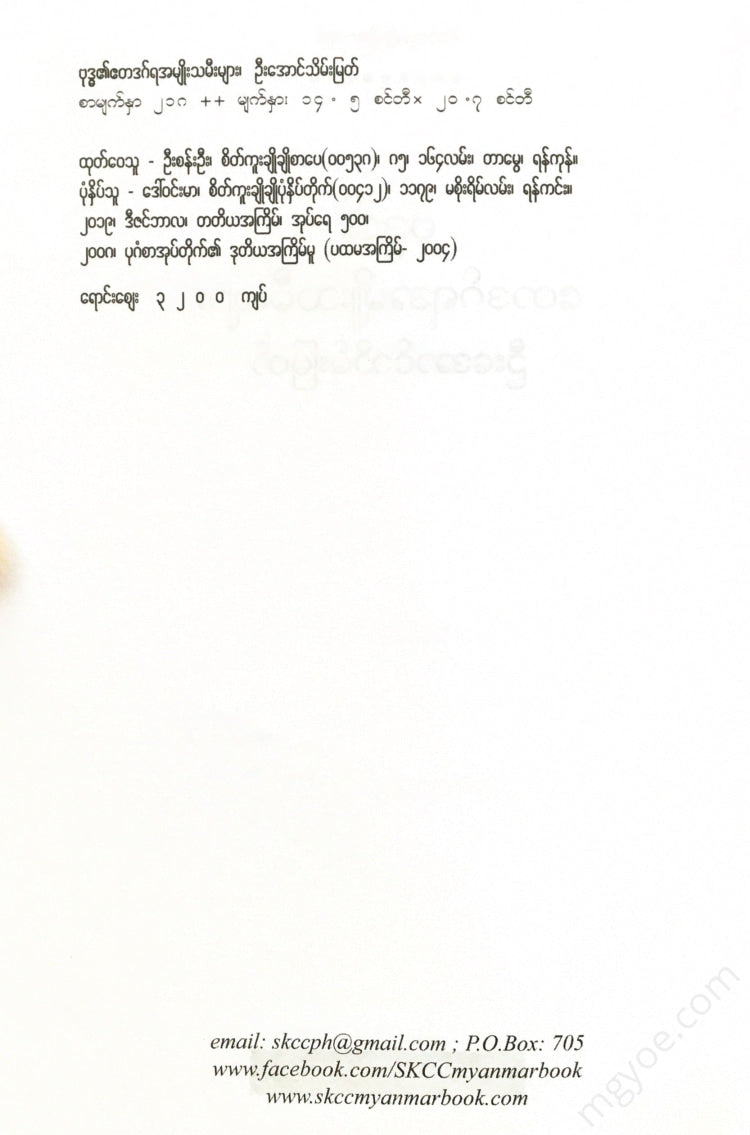 ဗုဒ္ဓ၏ဧတဒဂ်ရအမျိုးသမီးများ၊ ဦးအောင်သိမ်းမြတ်
စာမျက်နှာ ၂၁၈ ++ မျက်နှား ၁၄ . ၅ စင်တီ× ၂၀ .၇ စင်တီ
ထုတ်ဝေသူ - ဦးစန်းဦး၊ စိတ်ကူးချိုချိုစာပေ(၀၀၅၃၈)၊ ၈၅၊ ၁၆၄လမ်း၊ တာမွေ၊ ရန်ကုန်။
ပုံနှိပ်သူ - ဒေါ်ဝင်းမာ၊ စိတ်ကူးချိုချိုပုံနှိပ်တိုက်(၀၀၄၁၂)၊ ၁၁၇၉၊ မစိုးရိမ်လမ်း၊ ရန်ကင်း။
၂၀၁၉၊ ဒီဇင်ဘာလ၊ တတိယအကြိမ်၊ အုပ်ရေ ၅၀၀၊
၂၀၀၈၊ ပုဂံစာအုပ်တိုက်၏ ဒုတိယအကြိမ်မူ (ပထမအကြိမ်- ၂၀၀၄)
ရောင်းဈေး ၃ ၂ ၀ ၀ ကျပ်
email: skccph@gmail.com ; P.O.Box: 705
www.facebook.com/SKCCmyanmarbook
www.skccmyanmarbook.com
mgyoe.com